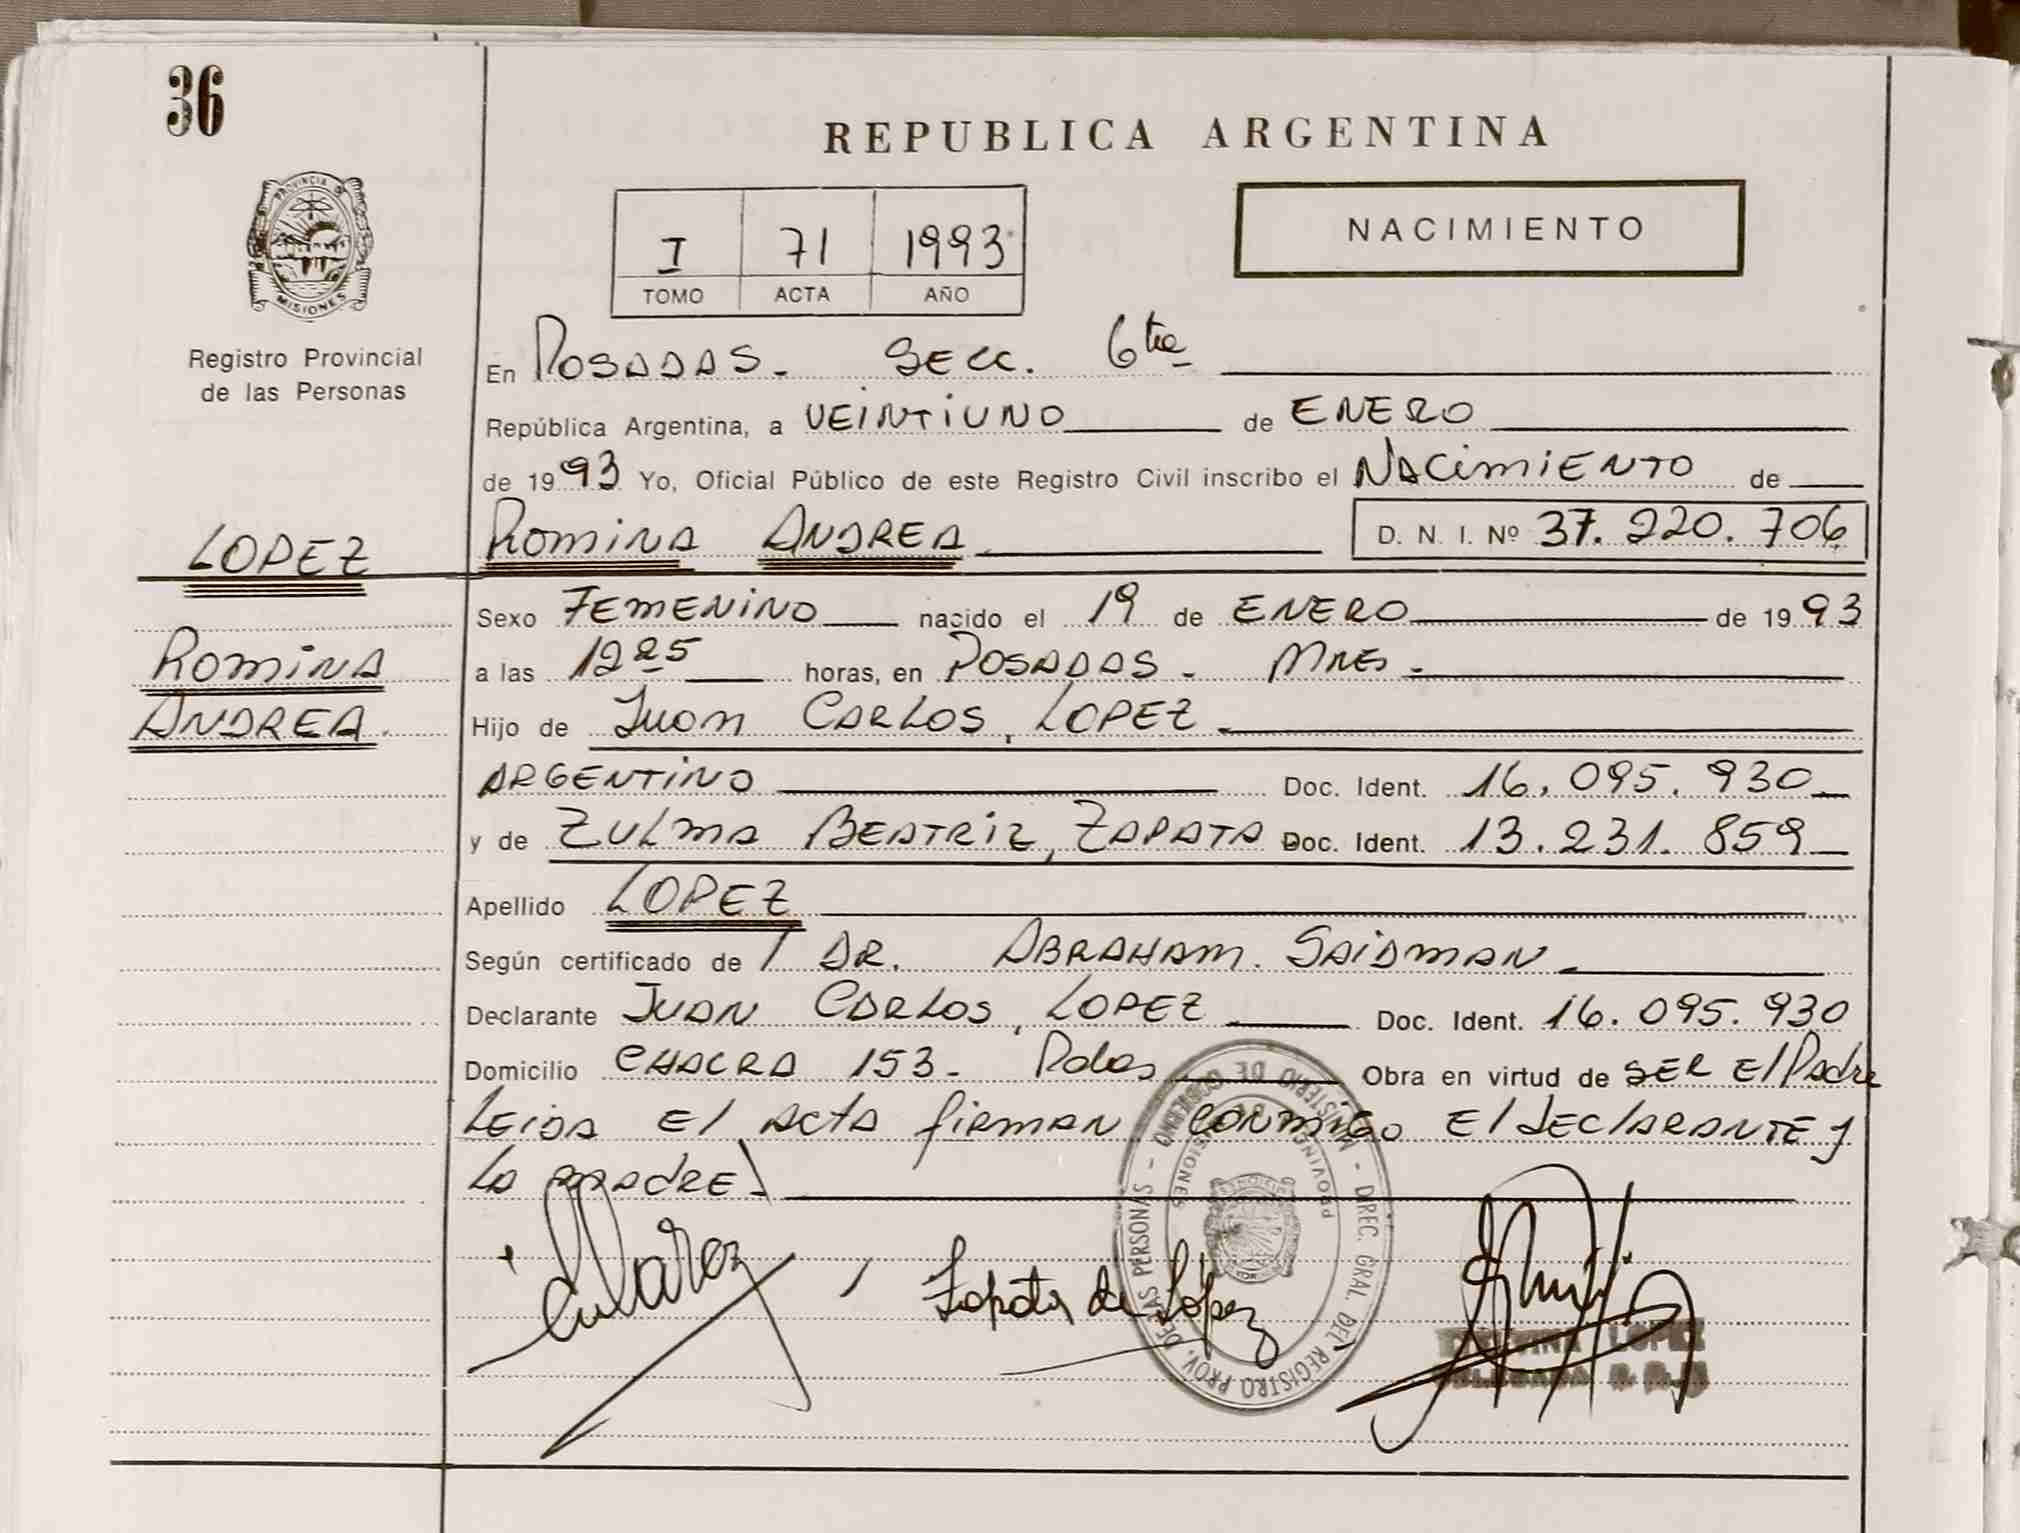 36
REPUBLICA ARGENTINA
PROVINCIA DE
MISIONES
I 71 1993
TOMO ACTA AÑO
NACIMIENTO
Registro Provincial
de las Personas
En POSADAS. SECC. 6ta
República Argentina, a VEINTIUNO de ENERO
de 1993 Yo, Oficial Público de este Registro Civil inscribo el NACIMIENTO de
LOPEZ
ROMINA ANDREA D. N. I. Nº 37.220.706
Sexo FEMENINO nacido el 19 de ENERO de 1993
ROMINA
a las 12 25 horas, en POSADAS - MNES.
ANDREA.
Hijo de JUAN CARLOS, LOPEZ
ARGENTINO Doc. Ident. 16.095.930
y de ZULMA BEATRIZ, ZAPATA Doc. Ident. 13.231.859
Apellido LOPEZ
Según certificado de / DR. ABRAHAM. SAIDMAN
Declarante JUAN CARLOS, LOPEZ Doc. Ident. 16.095.930
Domicilio CHACRA 153- Pdas Obra en virtud de SER El Padre
LEIDA El ACTA firman conmigo El dEclARANTE y
LA MADRE
Zapata de López
MINISTERIO DE GOBIERNO - DIREC. GRAL. DEL REGISTRO PROV. DE LAS PERSONAS -
PROVINCIA DE MISIONES
LOPEZ